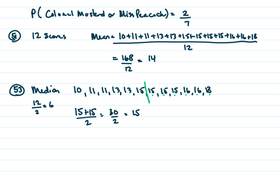 P(Colonel Mustard or Miss Peacock) = 2/7
12 Scores Mean = 10+11+11+13+13+15+15+15+15+16+16+18 / 12
= 168/12 = 14
53 Median 10, 11, 11, 13, 13, 15, 15, 15, 15, 16, 16, 18
12/2 = 6 15+15/2 = 30/2 = 15